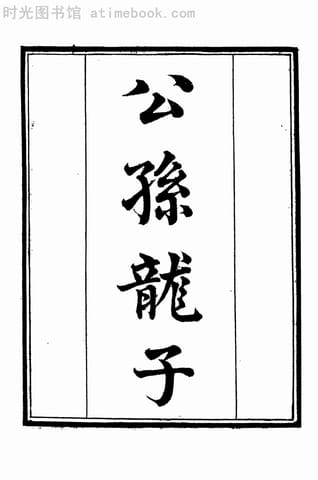 时光图书馆 atimebook.com
公孫龍子